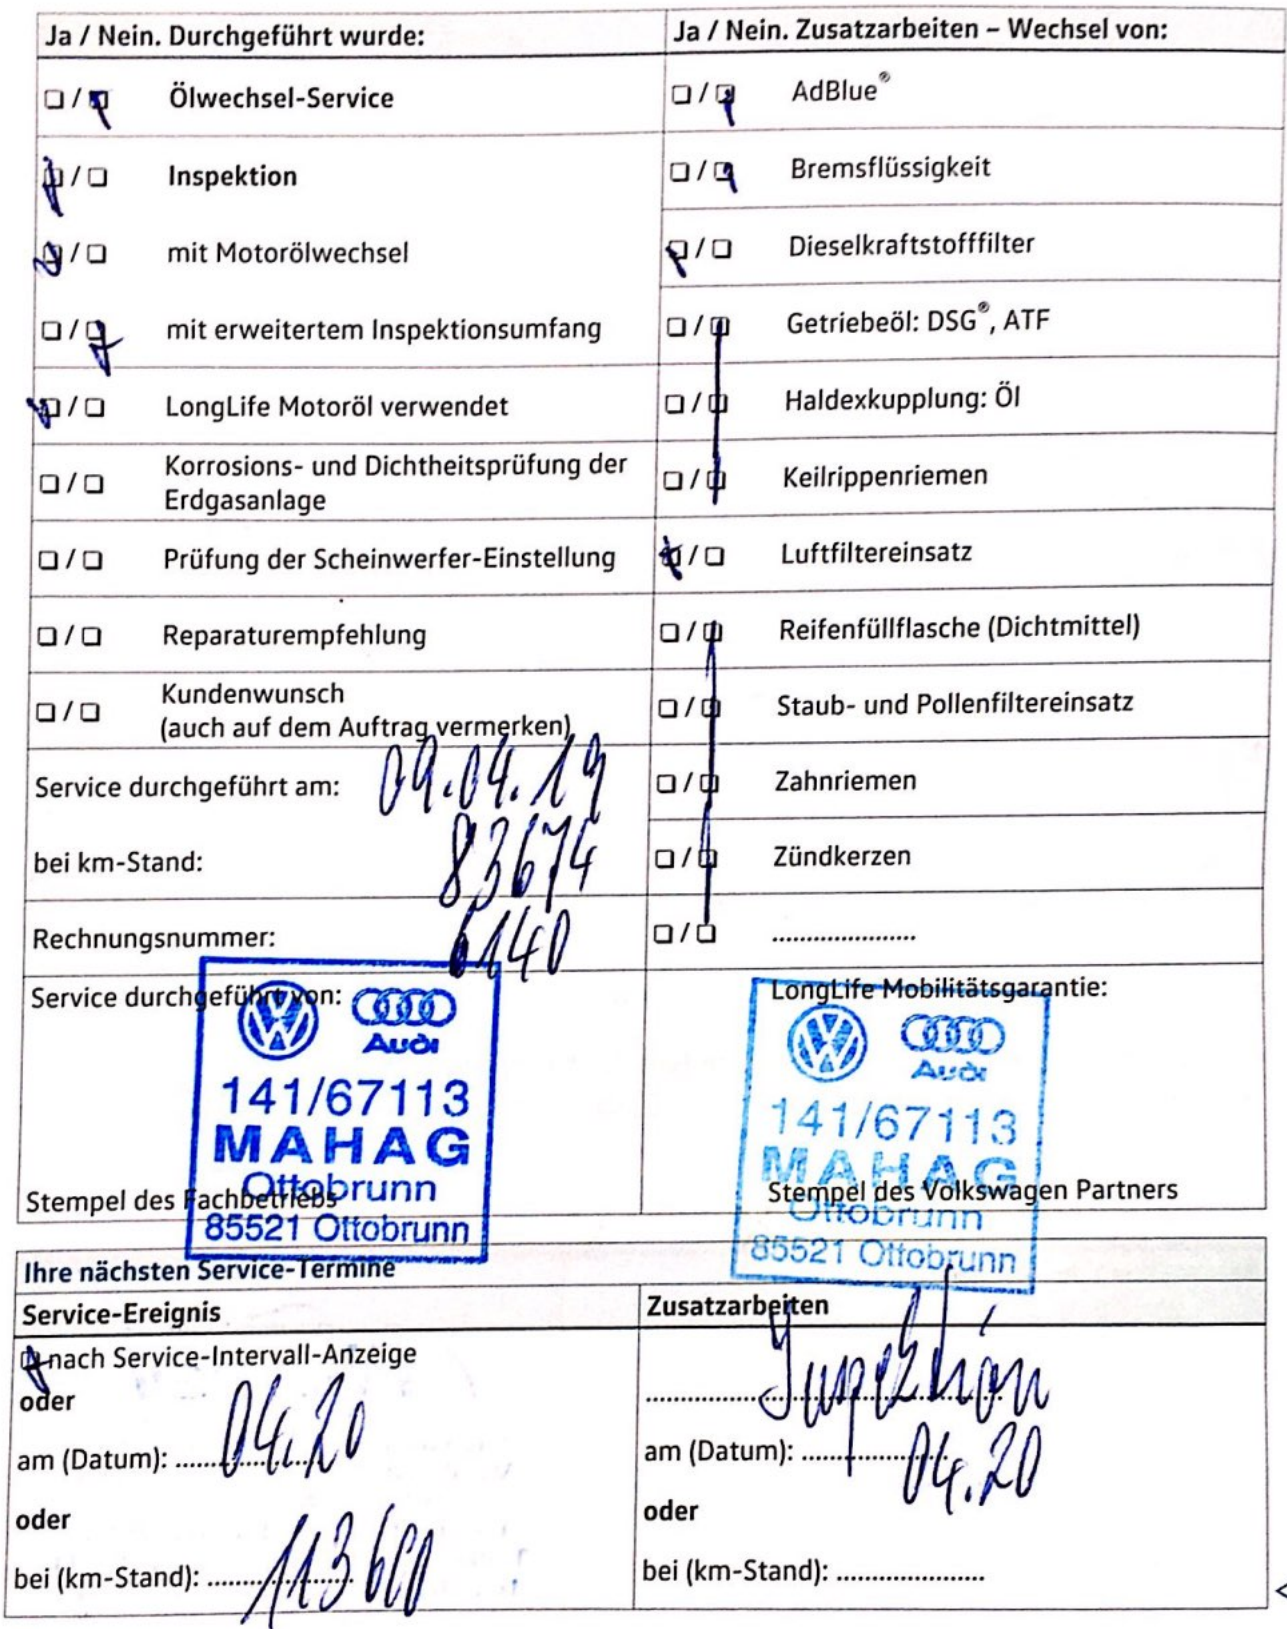 Ja / Nein. Durchgeführt wurde:
☐ / ☐ Ölwechsel-Service
☐ / ☐ Inspektion
☐ / ☐ mit Motorölwechsel
☐ / ☐ mit erweitertem Inspektionsumfang
☐ / ☐ LongLife Motoröl verwendet
☐ / ☐ Korrosions- und Dichtheitsprüfung der
Erdgasanlage
☐ / ☐ Prüfung der Scheinwerfer-Einstellung
☐ / ☐ Reparaturempfehlung
☐ / ☐ Kundenwunsch
(auch auf dem Auftrag vermerken)
Service durchgeführt am: 09.04.19
bei km-Stand: 83674
Rechnungsnummer: 6140
Service durchgeführt von:
Audi
141/67113
MAHAG
Ottobrunn
85521 Ottobrunn
Stempel des Fachbetriebs
Ja / Nein. Zusatzarbeiten – Wechsel von:
☐ / ☐ AdBlue®
☐ / ☐ Bremsflüssigkeit
☐ / ☐ Dieselkraftstofffilter
☐ / ☐ Getriebeöl: DSG®, ATF
☐ / ☐ Haldexkupplung: Öl
☐ / ☐ Keilrippenriemen
☐ / ☐ Luftfiltereinsatz
☐ / ☐ Reifenfüllflasche (Dichtmittel)
☐ / ☐ Staub- und Pollenfiltereinsatz
☐ / ☐ Zahnriemen
☐ / ☐ Zündkerzen
☐ / ☐ ......................
LongLife Mobilitätsgarantie:
Audi
141/67113
MAHAG
Ottobrunn
85521 Ottobrunn
Stempel des Volkswagen Partners
Ihre nächsten Service-Termine
Service-Ereignis
☐ nach Service-Intervall-Anzeige
oder
am (Datum): 04.20
oder
bei (km-Stand): 113600
Zusatzarbeiten
Inspektion
am (Datum): 04.20
oder
bei (km-Stand): ......................